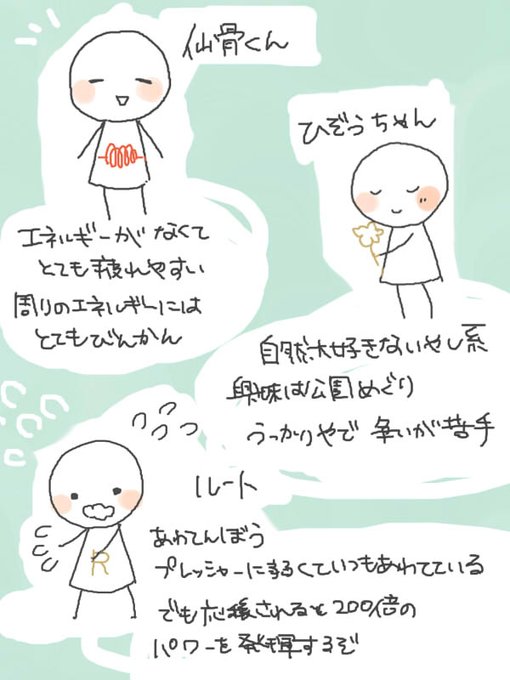 仙骨くん
エネルギーがなくて
とても疲れやすい
周りのエネルギーには
とてもびんかん
ひぞうちゃん
自然大好きないやし系
興味は公園めぐり
うっかりやで 争いが苦手
ルート
あわてんぼう
プレッシャーによるくていつもあわてている
でも応援されると200倍の
パワーを発揮するぞ
R